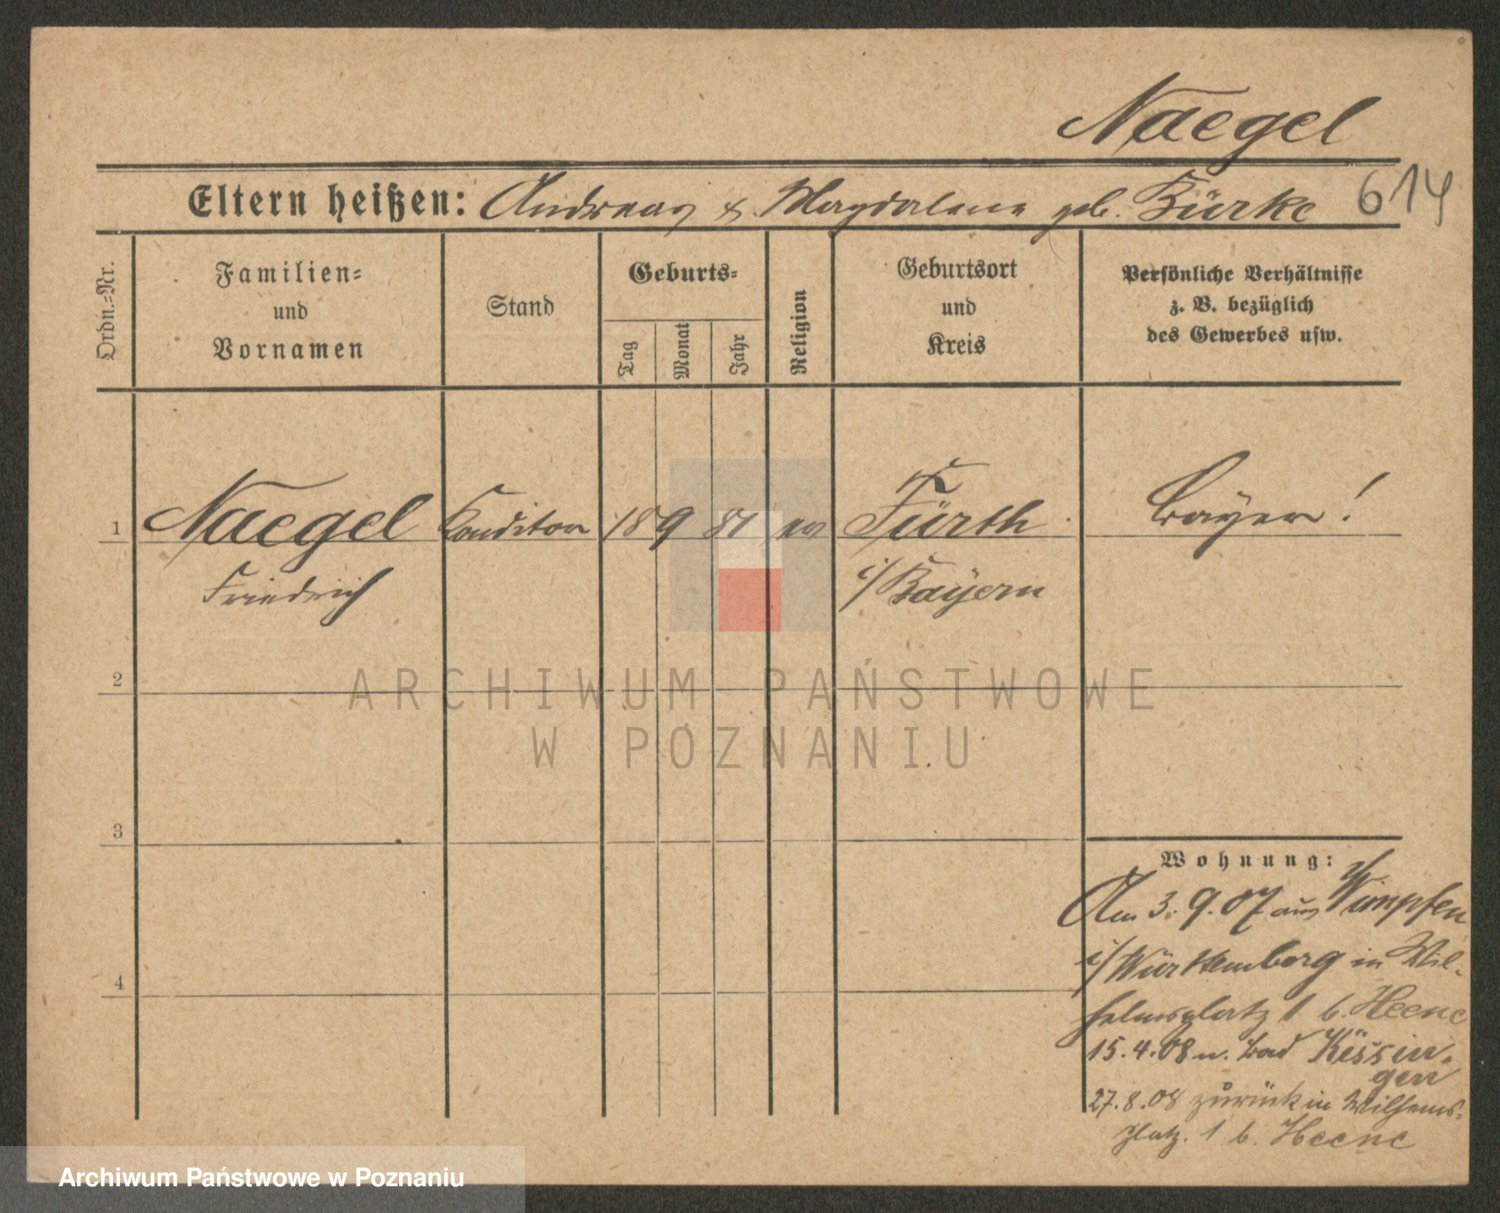 Naegel
614
Eltern heißen: Andreas & Magdalena geb. Bürke
Ordn.=Nr.
Familien=
und
Vornamen
Stand
Geburts=
Tag
Monat
Jahr
Religion
Geburtsort
und
Kreis
Persönliche Verhältnisse
z. B. bezüglich
des Gewerbes usw.
1 Naegel Conditor 18 9 81 ev Fürth Bayer!
Friedrich i/Bayern
2
3
4
Wohnung:
Am 3. 9. 07 aus Wimpfen
i/Württemberg in Wil-
helmsplatz 1 b. Heene
15. 4. 08 n. Bad Kissin-
gen
27. 8. 08 zurück in Wilhelms-
platz. 1 b. Heene
ARCHIWUM PAŃSTWOWE
W POZNANIU
Archiwum Państwowe w Poznaniu